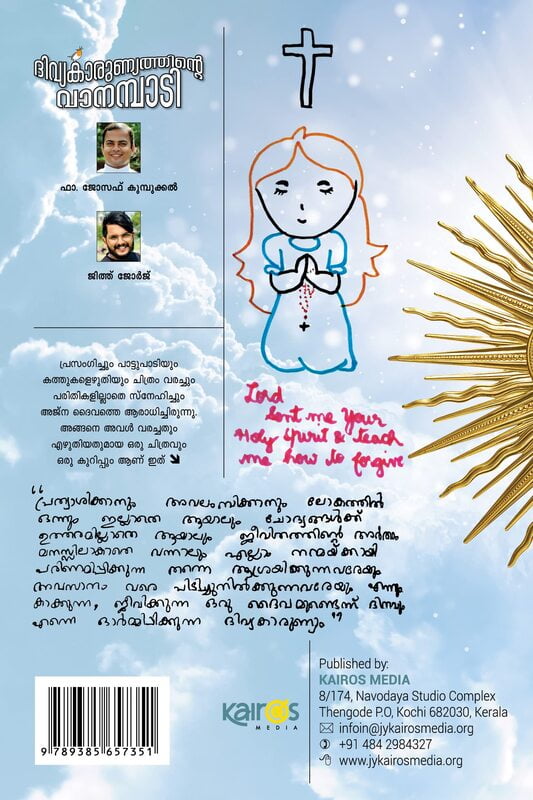 ദിവ്യകാരുണ്യത്തിന്റെ
വാനമ്പാടി
ഫാ. ജോസഫ് കുമ്പുക്കൽ
ജിത്ത് ജോർജ്
പ്രസംഗിച്ചും പാട്ടുപാടിയും
കത്തുകളെഴുതിയും ചിത്രം വരച്ചും
പരിതികളില്ലാതെ സ്നേഹിച്ചും
അജ്ന ദൈവത്തെ ആരാധിച്ചിരുന്നു.
അങ്ങനെ അവൾ വരച്ചതും
എഴുതിയതുമായ ഒരു ചിത്രവും
ഒരു കുറിപ്പും ആണ് ഇത്
Lord
me Your
Holy Spirit & teach
me how to forgive
“പ്രത്യാശിക്കാനും അവലംബിക്കാനും ലോകത്തിൽ
ഒന്നും ഇല്ലാതെ ആയാലും ചോദ്യങ്ങൾക്ക്
ഉത്തരമില്ലാതെ ആയാലും ജീവിതത്തിന്റെ അർത്ഥം
മനസ്സിലാകാതെ വന്നാലും എല്ലാം നന്മയ്ക്കായി
പരിണമിപ്പിക്കുന്ന തന്നെ ആശ്രയിക്കുന്നവരേയും
അവസാനം വരെ പിടിച്ചുനിൽക്കുന്നവരേയും എന്നും
കാക്കുന്ന, ജീവിക്കുന്ന ഒരു ദൈവമുണ്ടെന്ന് ദിനവും
എന്നെ ഓർമ്മിപ്പിക്കുന്ന ദിവ്യകാരുണ്യം”
9 789385 657351
kairos
MEDIA
Published by:
KAIROS MEDIA
8/174, Navodaya Studio Complex
Thengode P.O, Kochi 682030, Kerala
infoin@jykairosmedia.org
+91 484 2984327
www.jykairosmedia.org